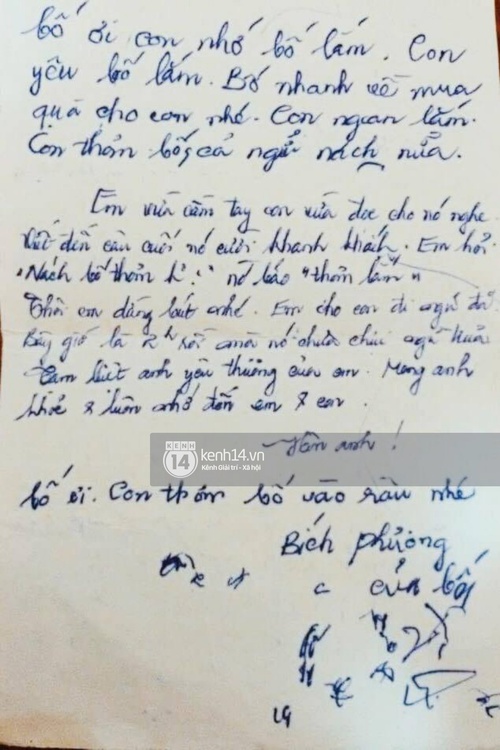 bố ơi con nhớ bố lắm. Con
yêu bố lắm. Bố nhanh về mua
quà cho con nhé. Con ngoan lắm.
Con thơm bố, cả ngửi nách nữa.
Em vừa cầm tay con vừa đọc cho nó nghe
Viết đến câu cuối nó cười khanh khách. Em hỏi
"Nách bố thơm k?" nó bảo "thơm lắm"
Thôi em dừng bút anh nhé. Em cho con đi ngủ đã
Bây giờ là 2h rồi mà nó chưa chịu ngủ nữa
Tạm biệt anh yêu thương của em. Mong anh
khỏe & luôn nhớ đến em & con.
Hôn anh!
KENH
14
kenh14.vn
Kênh Giải trí - Xã hội
bố ơi. Con thơm bố vào râu nhé
Bích phượng
của bố